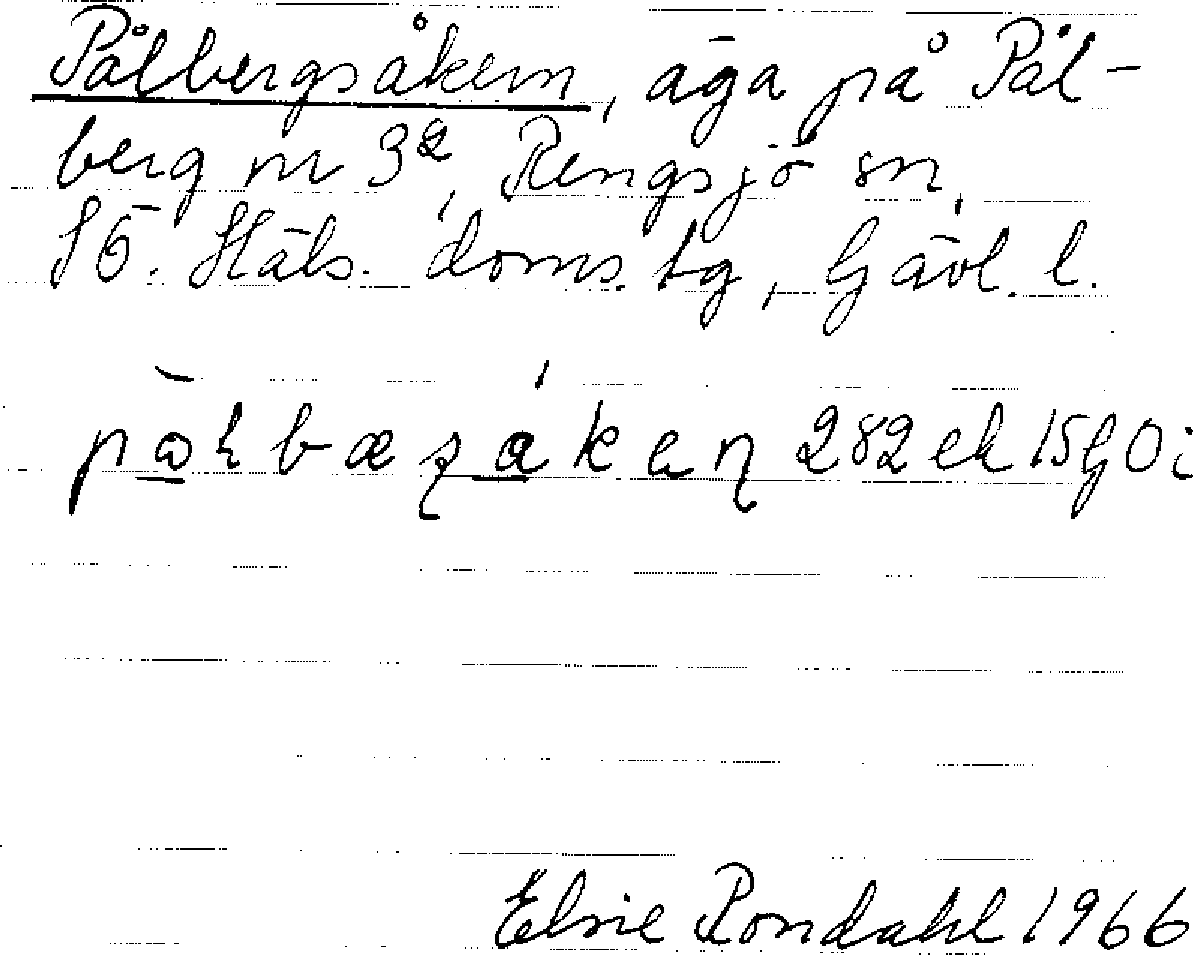 Pålbergsåkern, äga på Pål-
berg nr 3², Rengsjö sn,
SÖ. Häls. doms. tg, Gävl. l.
282 ek 15 G0i
Elsie Rondahl 1966